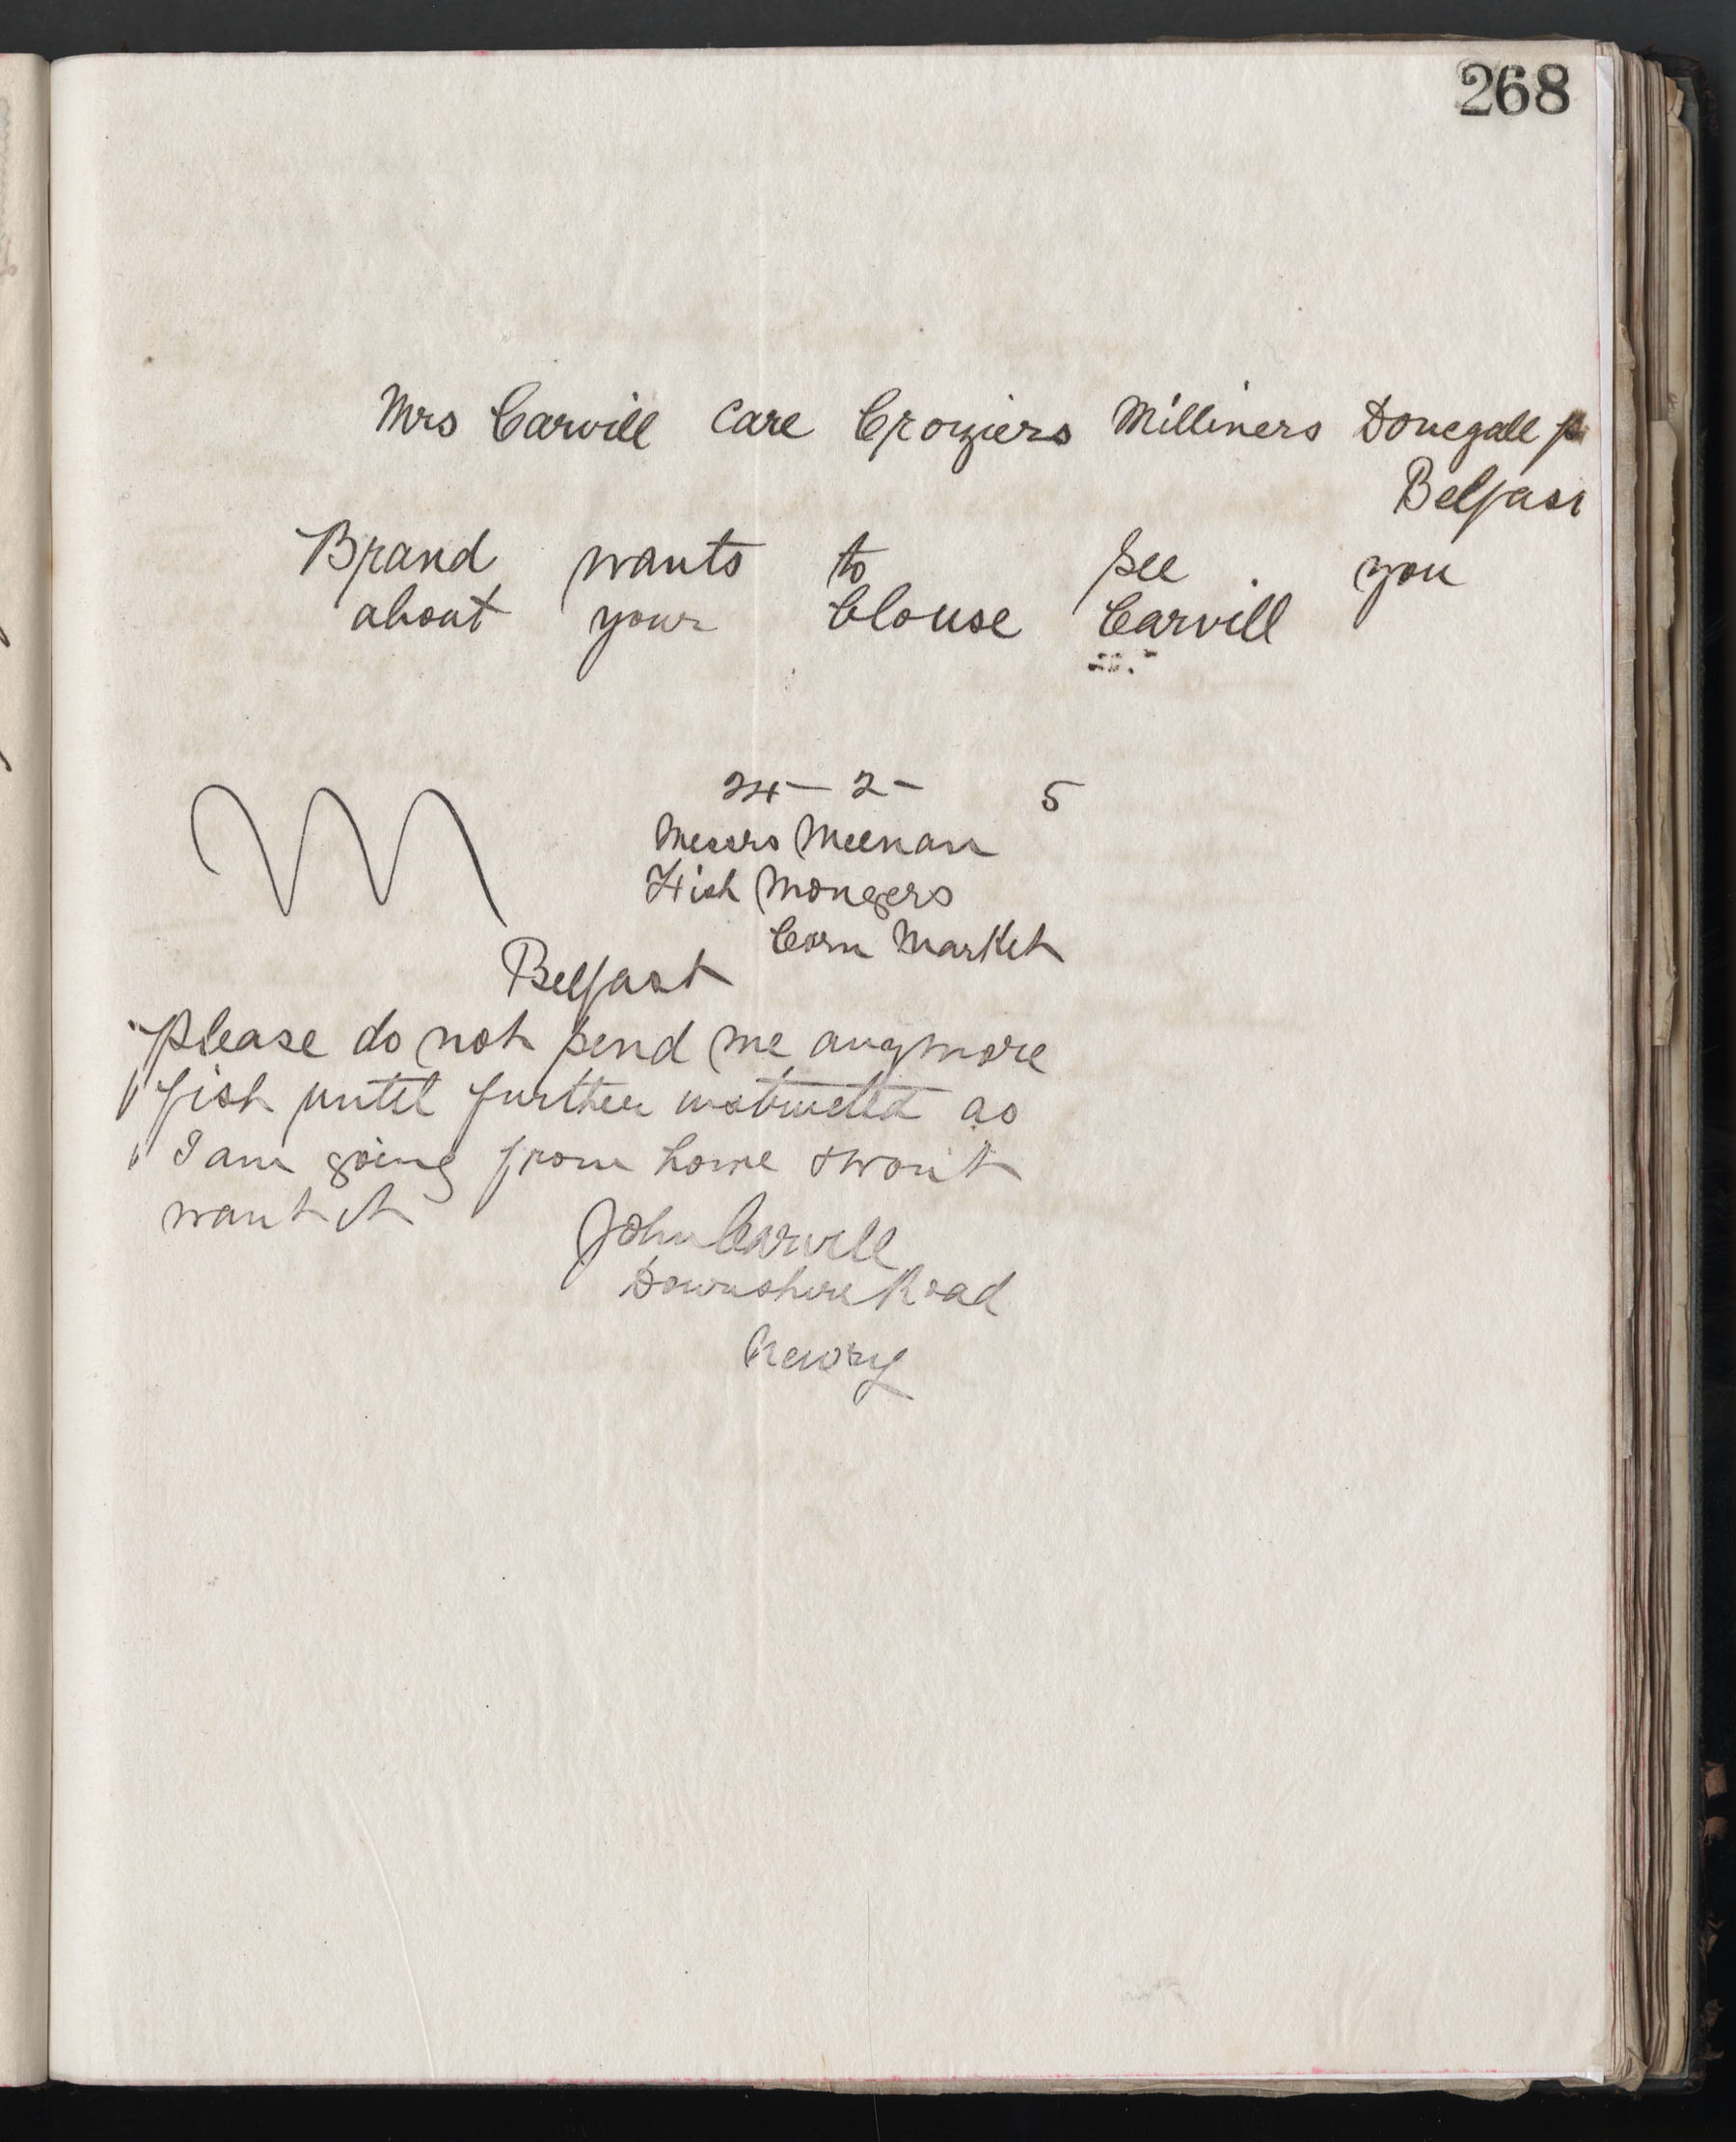 268
Mrs Carvill Care Croziers Milliners Donegall
Belfast
Brand wants to see you
about your blouse Carvill
24 - 2 - 5
Messrs Meenan
Fish Mongers
Corn Market
Belfast
Please do not send me anymore
fish until further instructed as
I am going from home & won't
want it
John Carvill
Downshire Road
Newry